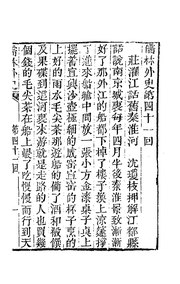 儒林外史第四十一回
莊濯江話舊秦淮河 沈瓊枝押解江都縣
話說南京城裏每年四月半後秦淮景致漸漸
好了那外江的船都下掉了樓子換上涼篷撐
了進來船艙中間放一張小方金漆桌子桌上
擺着宜興沙壺極細的成窰宣窰的杯子烹的
上好的雨水毛尖茶那遊船的備了酒和殽饌
及果碟到這河裏來遊就是走路的人也買幾
個錢的毛尖茶在船上煨了吃慢慢而行到天
第四十一回